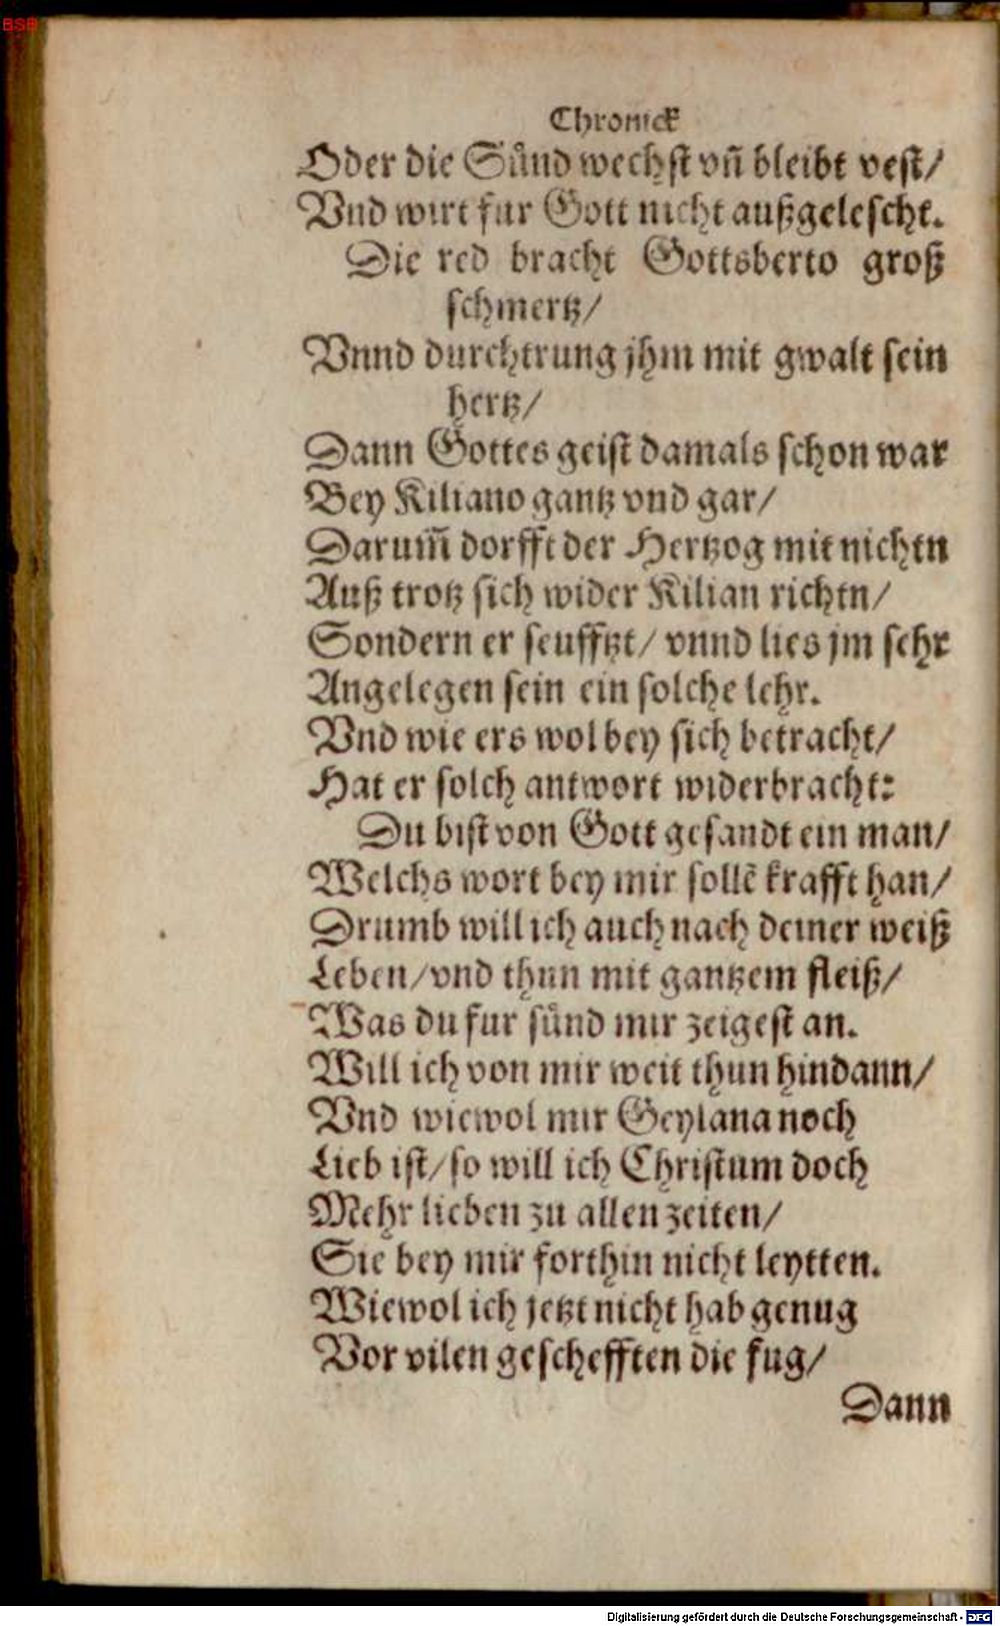 BSB
Chronick
Oder die Sůnd wechst vn̄ bleibt vest/
Vnd wirt fur Gott nicht außgelescht.
Die red bracht Gottsberto groß
schmertz/
Vnnd durchtrung jhm mit gwalt sein
hertz/
Dann Gottes geist damals schon war
Bey Kiliano gantz vnd gar/
Darum̄ dorfft der Hertzog mit nichtn
Auß trotz sich wider Kilian richtn/
Sondern er seufftzt/ vnnd lies jm sehr
Angelegen sein ein solche lehr.
Vnd wie ers wol bey sich betracht/
Hat er solch antwort widerbracht:
Du bist von Gott gesandt ein man/
Welchs wort bey mir sollē krafft han/
Drumb will ich auch nach deiner weiß
Leben/ vnd thun mit gantzem fleiß/
Was du fur sůnd mir zeigest an.
Will ich von mir weit thun hindann/
Vnd wiewol mir Geylana noch
Lieb ist/ so will ich Christum doch
Mehr lieben zu allen zeiten/
Sie bey mir forthin nicht leytten.
Wiewol ich jetzt nicht hab genug
Vor vilen geschefften die fug/
Dann
Digitalisierung gefördert durch die Deutsche Forschungsgemeinschaft - DFG